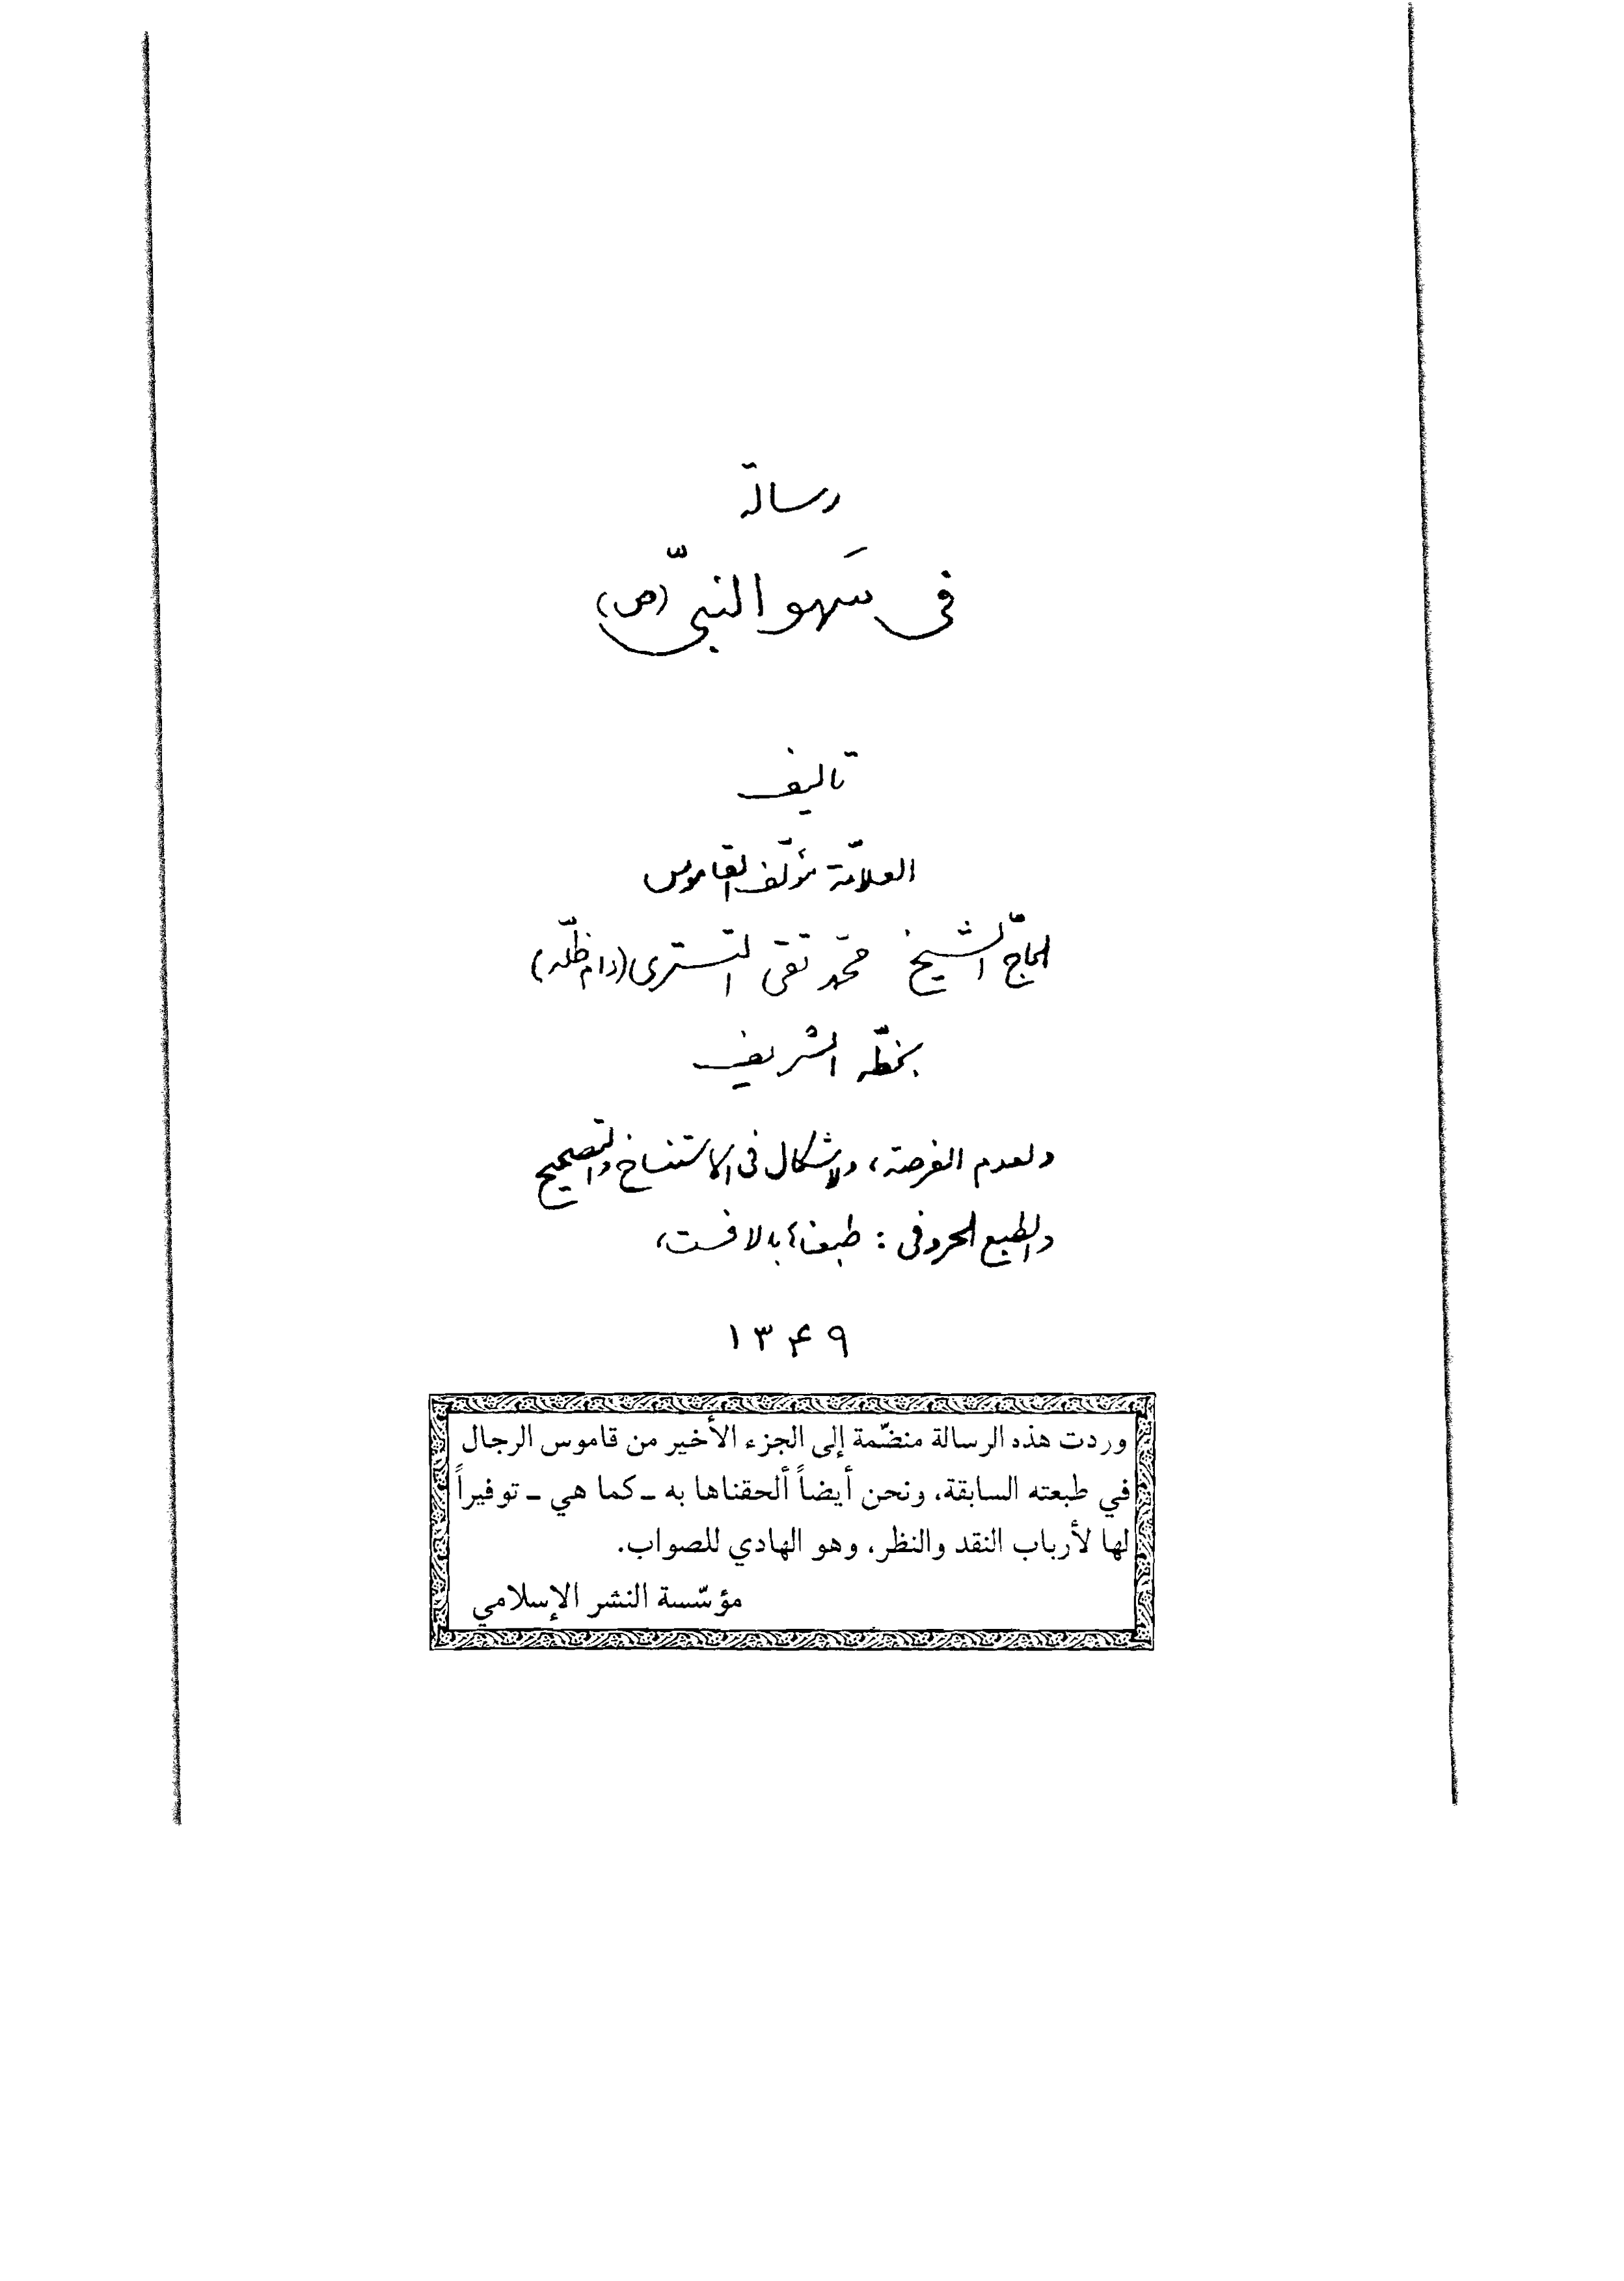 رسالة
فى سَهو النبىّ (ص)
تاليف
العلاّمة مؤلّف القاموس
الحاجّ الشيخ محمّد تقى التسترى (دام ظلّه)
بخطّه الشريف
ولعدم الفرصة، ولاشكال فى الاستنساخ والتصحيح
والطبع الحروفى : طبعناه بالافست،
۱۳۴۹
وردت هذه الرسالة منضّمة إلى الجزء الأخير من قاموس الرجال
في طبعته السابقة، ونحن أيضاً ألحقناها به ـ كما هي ـ توفيراً
لها لأرباب النقد والنظر، وهو الهادي للصواب.
مؤسّسة النشر الإسلامي